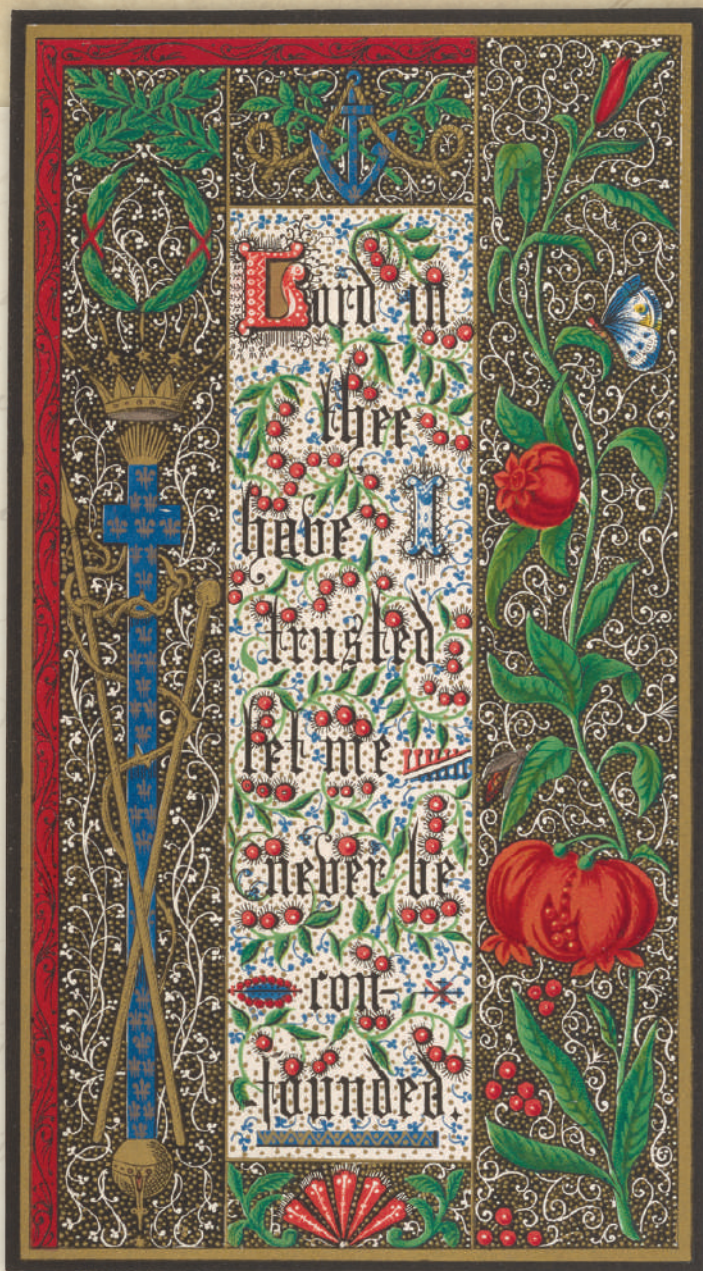 Lord in
thee
have I
trusted
let me
never be
con-
founded.